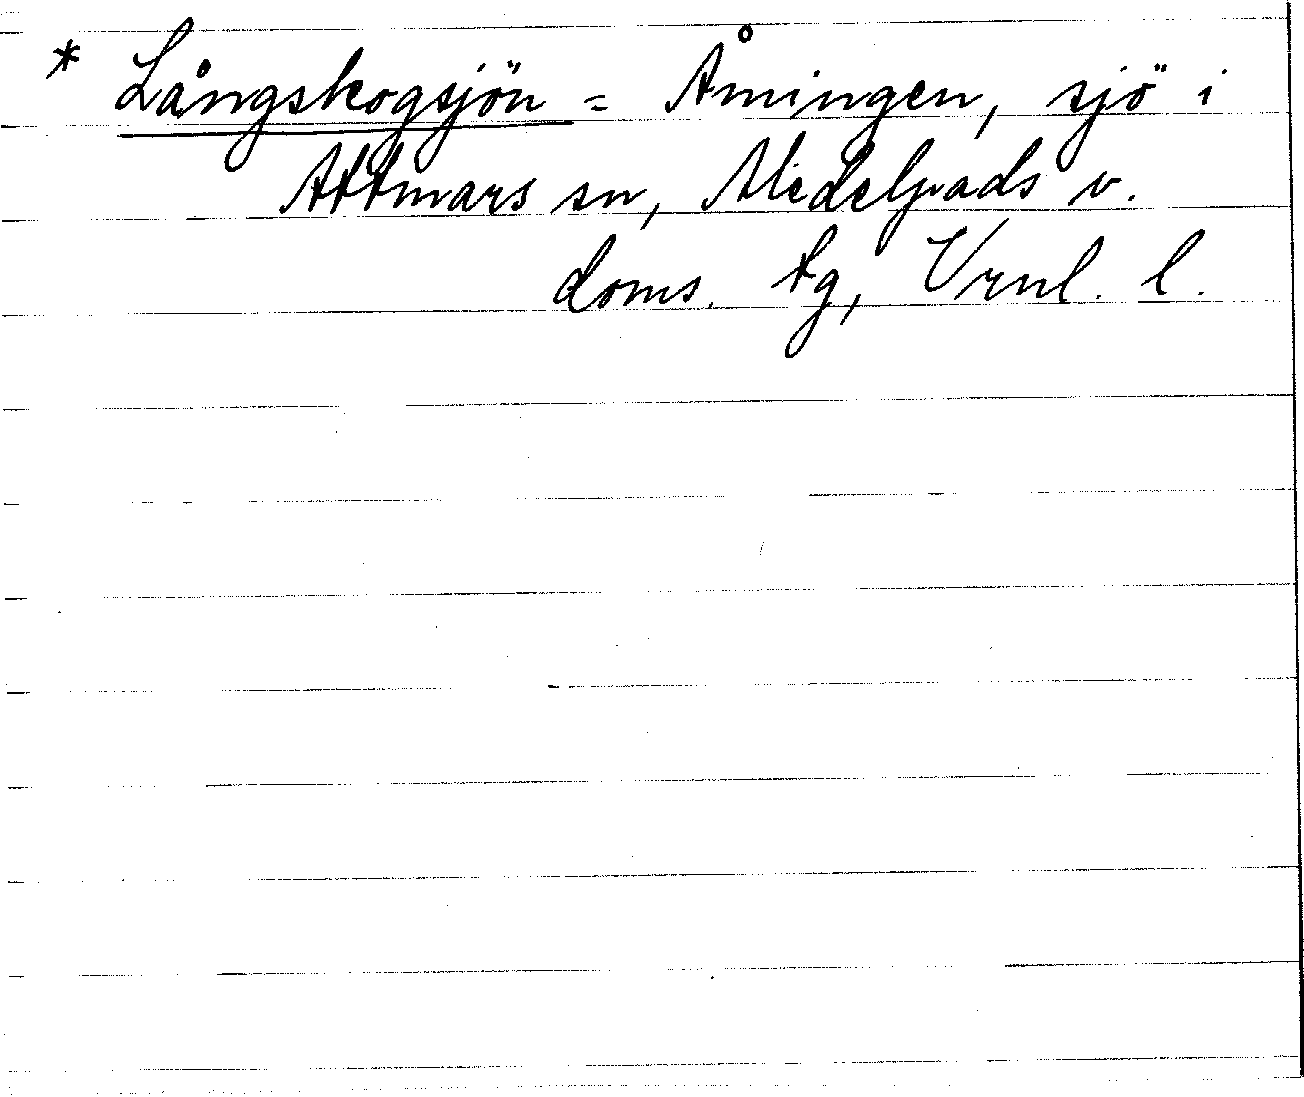 * Långskogsjön = Åmingen, sjö i
Attmars sn, Medelpads v.
doms. tg, Vrnl. l.